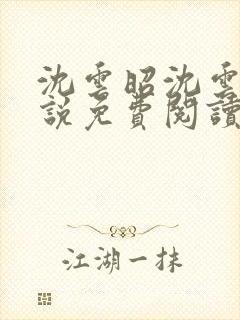 沈雲昭沈雲
說免費閱讀
江湖一抹